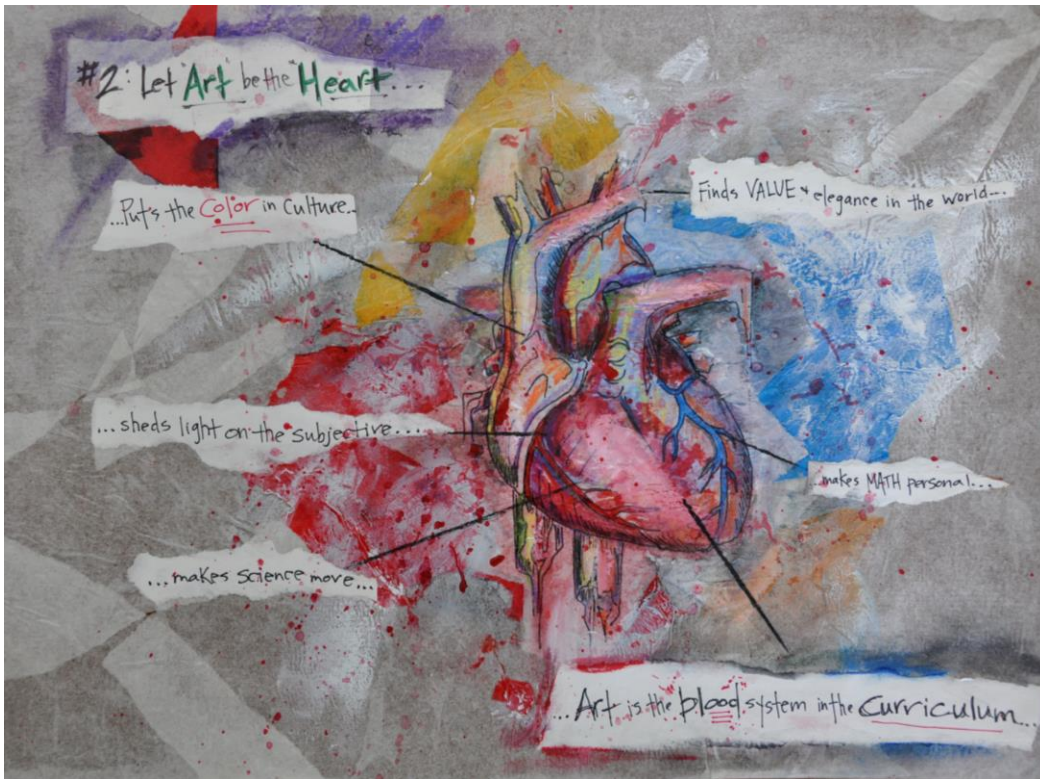 #2: Let "Art" be the "Heart"...
...Put's the Color in Culture..
Finds VALUE + elegance in the world...
...sheds light on the subjective.....
...makes MATH personal...
...makes science move...
...Art is the blood system in the Curriculum...